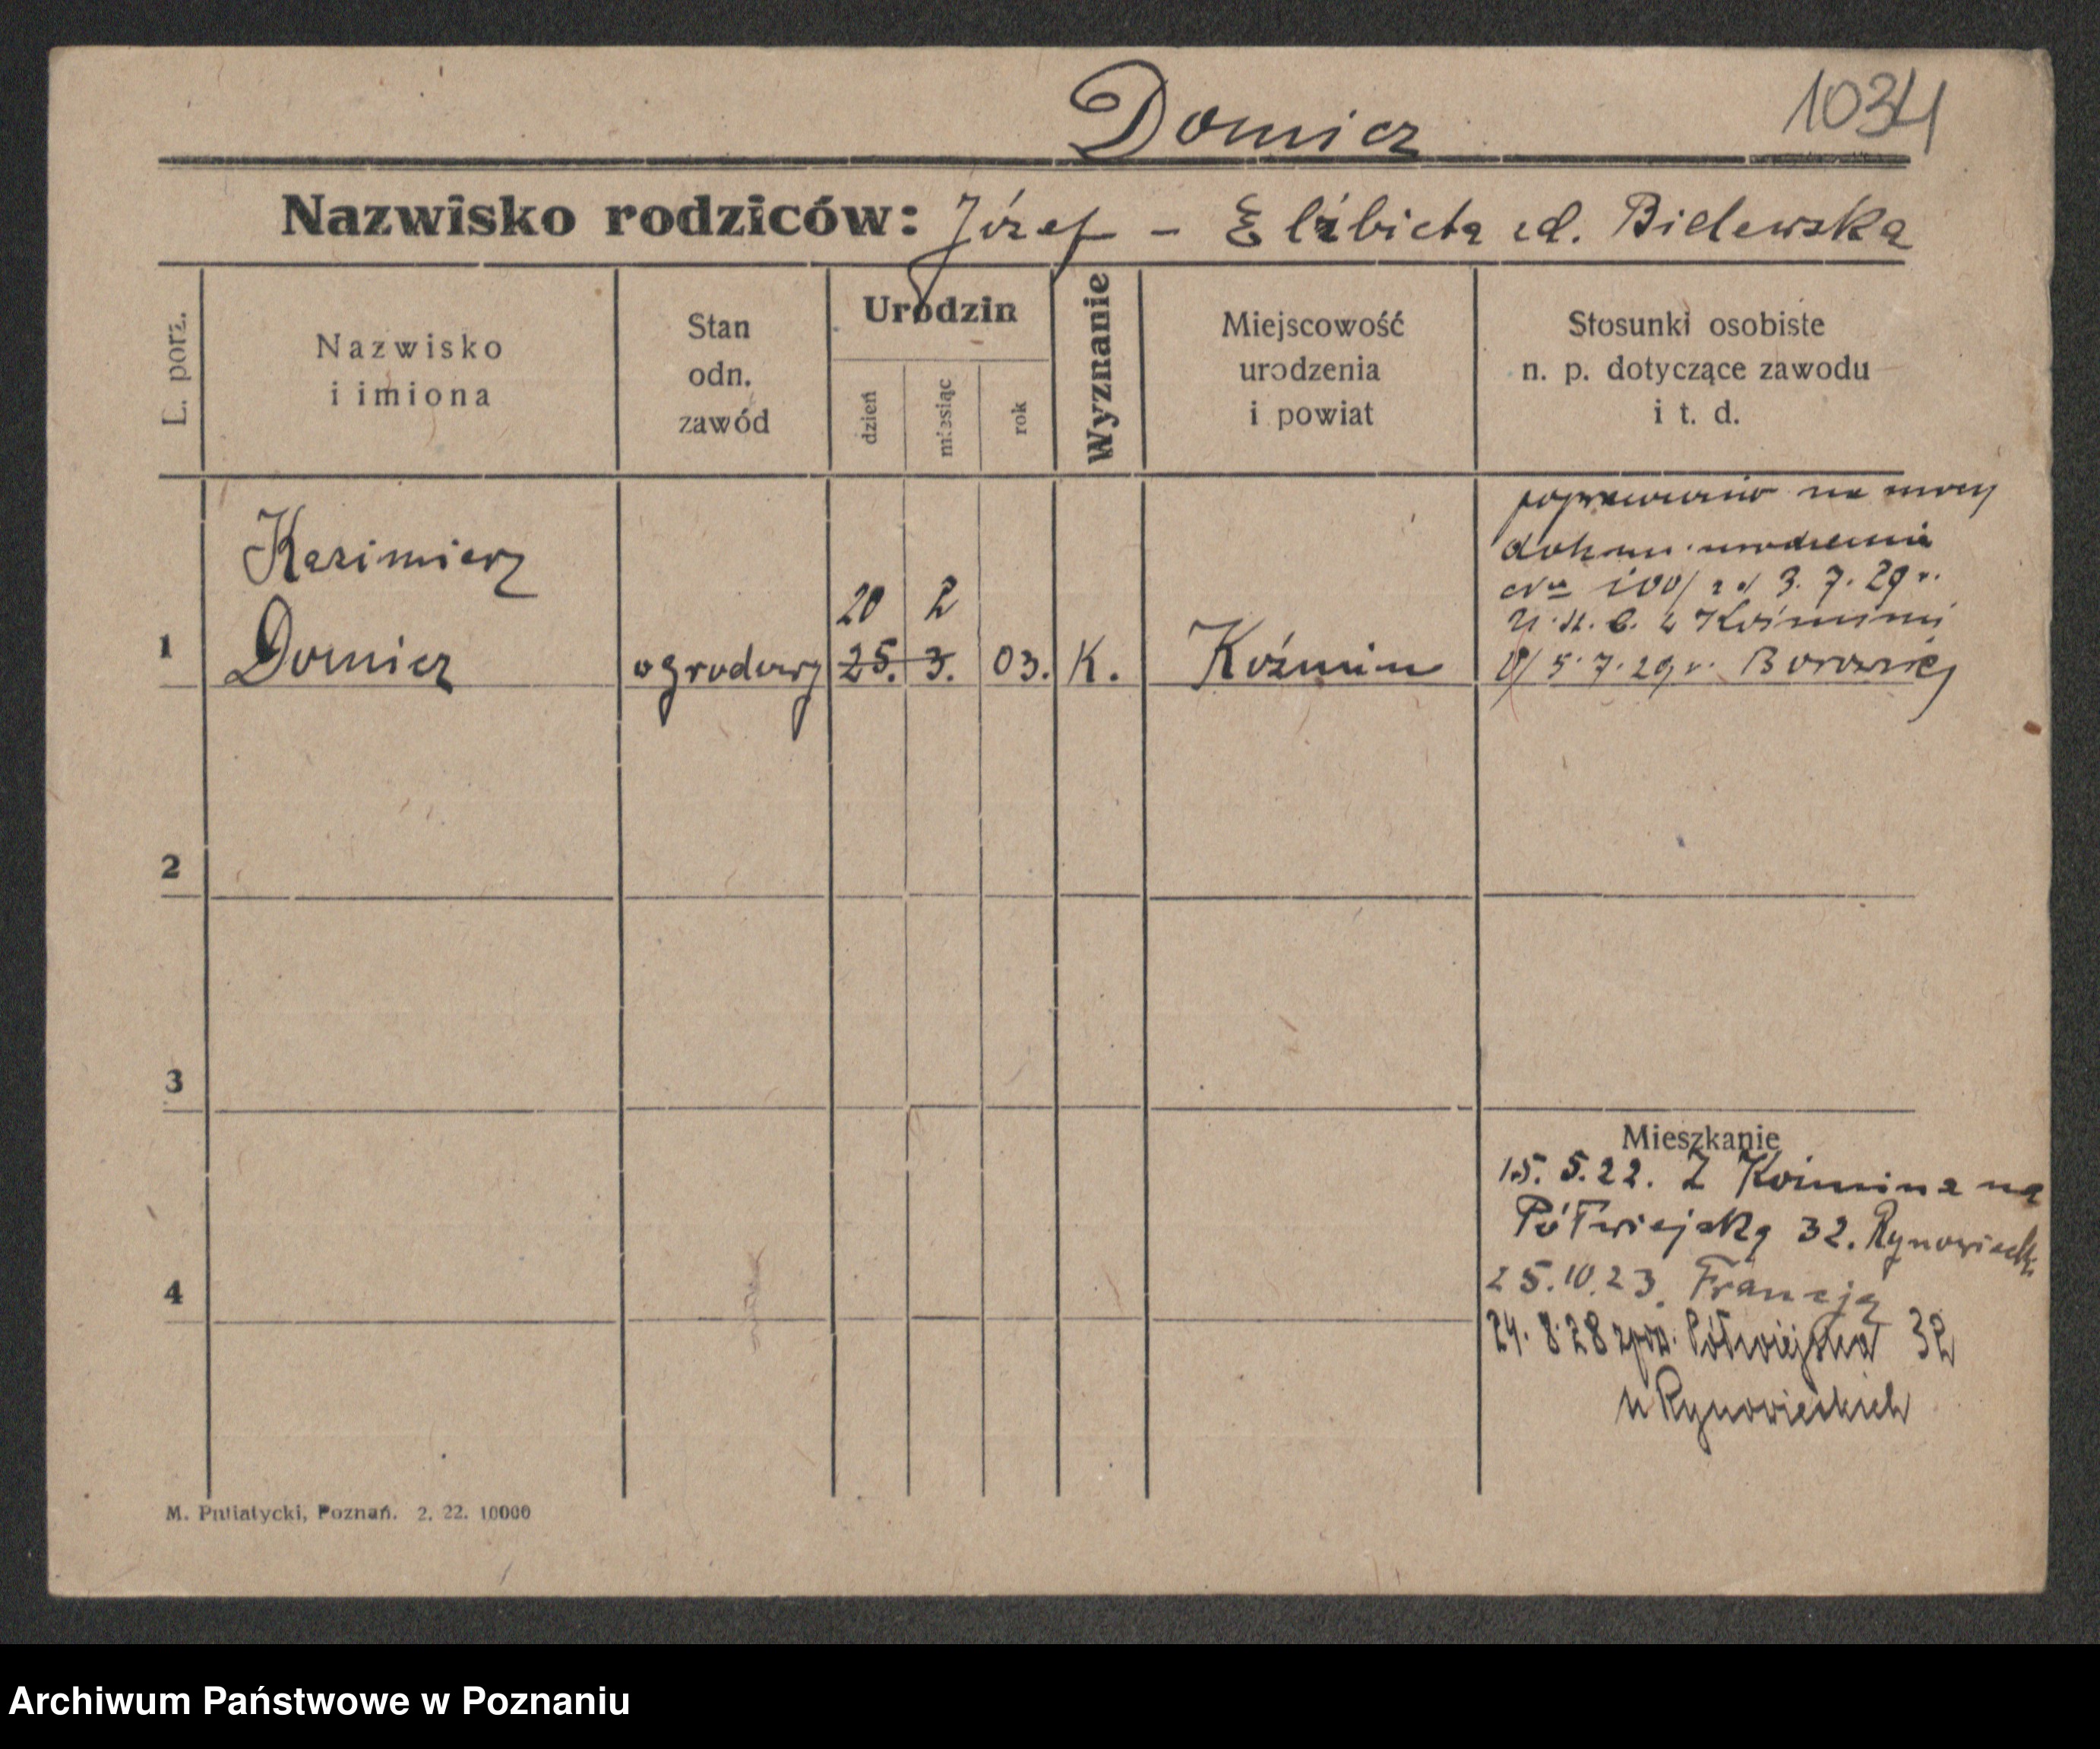 Domicz 1034
Nazwisko rodziców: Józef - Elżbieta zd. Bielewska
L. porz.
Nazwisko
i imiona
Stan
odn.
zawód
Urodzin
dzień
miesiąc
rok
Wyznanie
Miejscowość
urodzenia
i powiat
Stosunki osobiste
n. p. dotyczące zawodu
i t. d.
1
Kazimierz
Domicz
ogrodowy
20 2
25. 3. 03.
K.
Koźmin
poprawiono na mocy
dokum. urodzenia
100/ 3. 7. 29 r.
Koźminie
5. 7. 29 r.
2
3
4
Mieszkanie
15. 5. 22. Z Koźmina na
Półwiejską 32. Rynowiecki
25. 10. 23. Francja
24. 8. 28 zpow. Półwiejska 32
u Rynowieckich
M. Putiatycki, Poznań. 2. 22. 10000
Archiwum Państwowe w Poznaniu